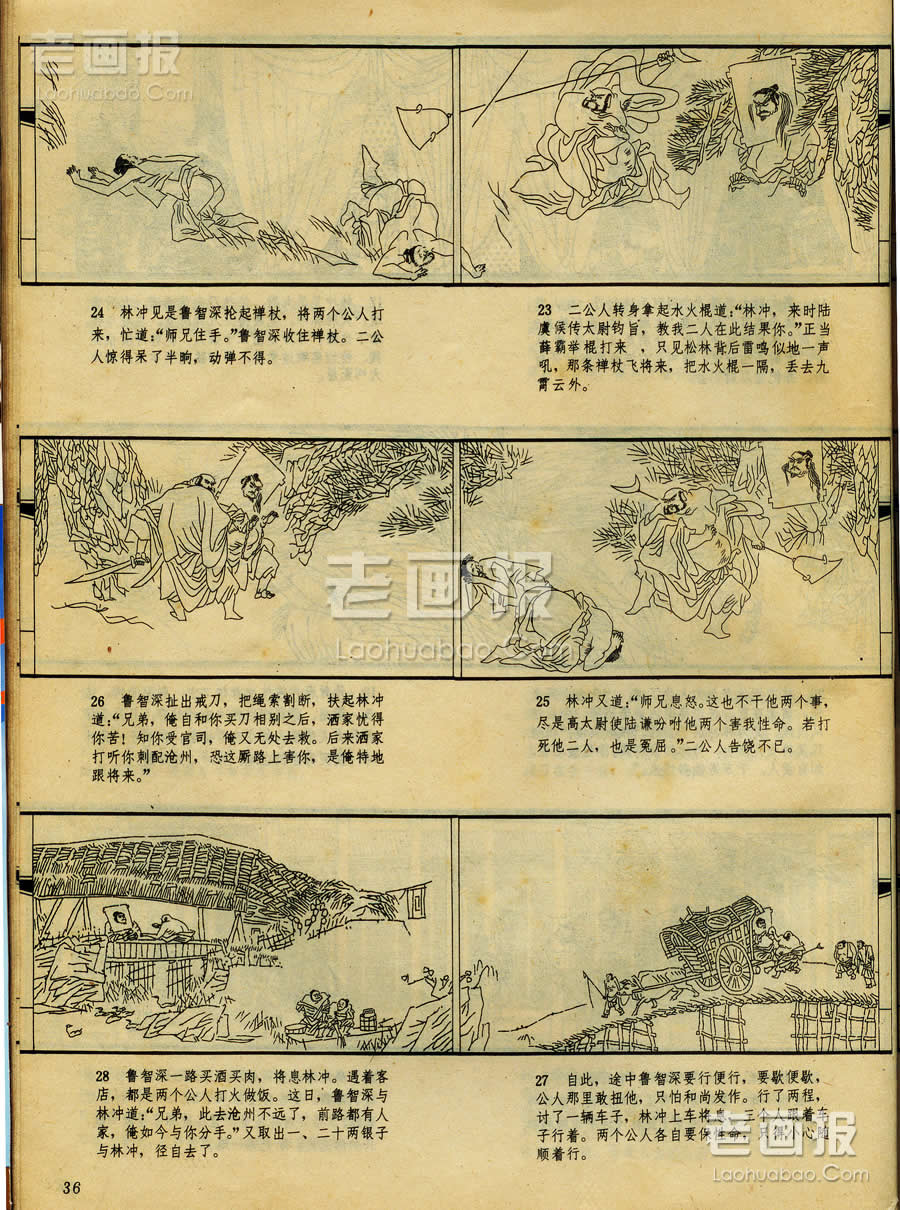 老画报
Laohuabao.Com
23 二公人转身拿起水火棍道:“林冲，来时陆
虞侯传太尉钧旨，教我二人在此结果你。”正当
薛霸举棍打来 ，只见松林背后雷鸣似地一声
吼，那条禅杖飞将来，把水火棍一隔，丢去九
霄云外。
24 林冲见是鲁智深抡起禅杖，将两个公人打
来，忙道:“师兄住手。”鲁智深收住禅杖。二公
人惊得呆了半晌，动弹不得。
老画报
Laohuabao.Com
25 林冲又道:“师兄息怒。这也不干他两个事，
尽是高太尉使陆谦吩咐他两个害我性命。若打
死他二人，也是冤屈。”二公人告饶不已。
26 鲁智深扯出戒刀，把绳索割断，扶起林冲
道:“兄弟，俺自和你买刀相别之后，洒家忧得
你苦！知你受官司，俺又无处去救。后来洒家
打听你刺配沧州，恐这厮路上害你，是俺特地
跟将来。”
27 自此，途中鲁智深要行便行，要歇便歇，
公人那里敢扭他，只怕和尚发作。行了两程，
讨了一辆车子，林冲上车将息，三个人跟着车
子行着。两个公人各自要保性命，只得小心随
顺着行。
28 鲁智深一路买酒买肉，将息林冲。遇着客
店，都是两个公人打火做饭。这日，鲁智深与
林冲道:“兄弟，此去沧州不远了，前路都有人
家，俺如今与你分手。”又取出一、二十两银子
与林冲，径自去了。
老画报
Laohuabao.Com
36